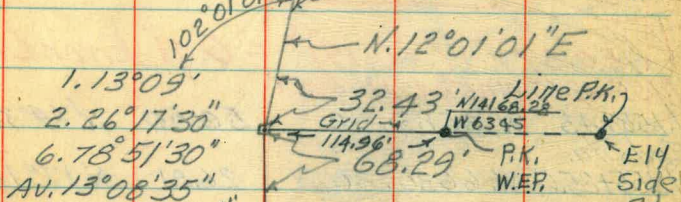 102°01'0
N.12°01'01"E
1. 13°09'
2. 26°17'30"
6. 78°51'30"
AV. 13°08'35"
32.43'
68.29'
Grid
114.96'
N14168.22
W6345
Line P.K.
P.K.
W.E.P.
E14
Side